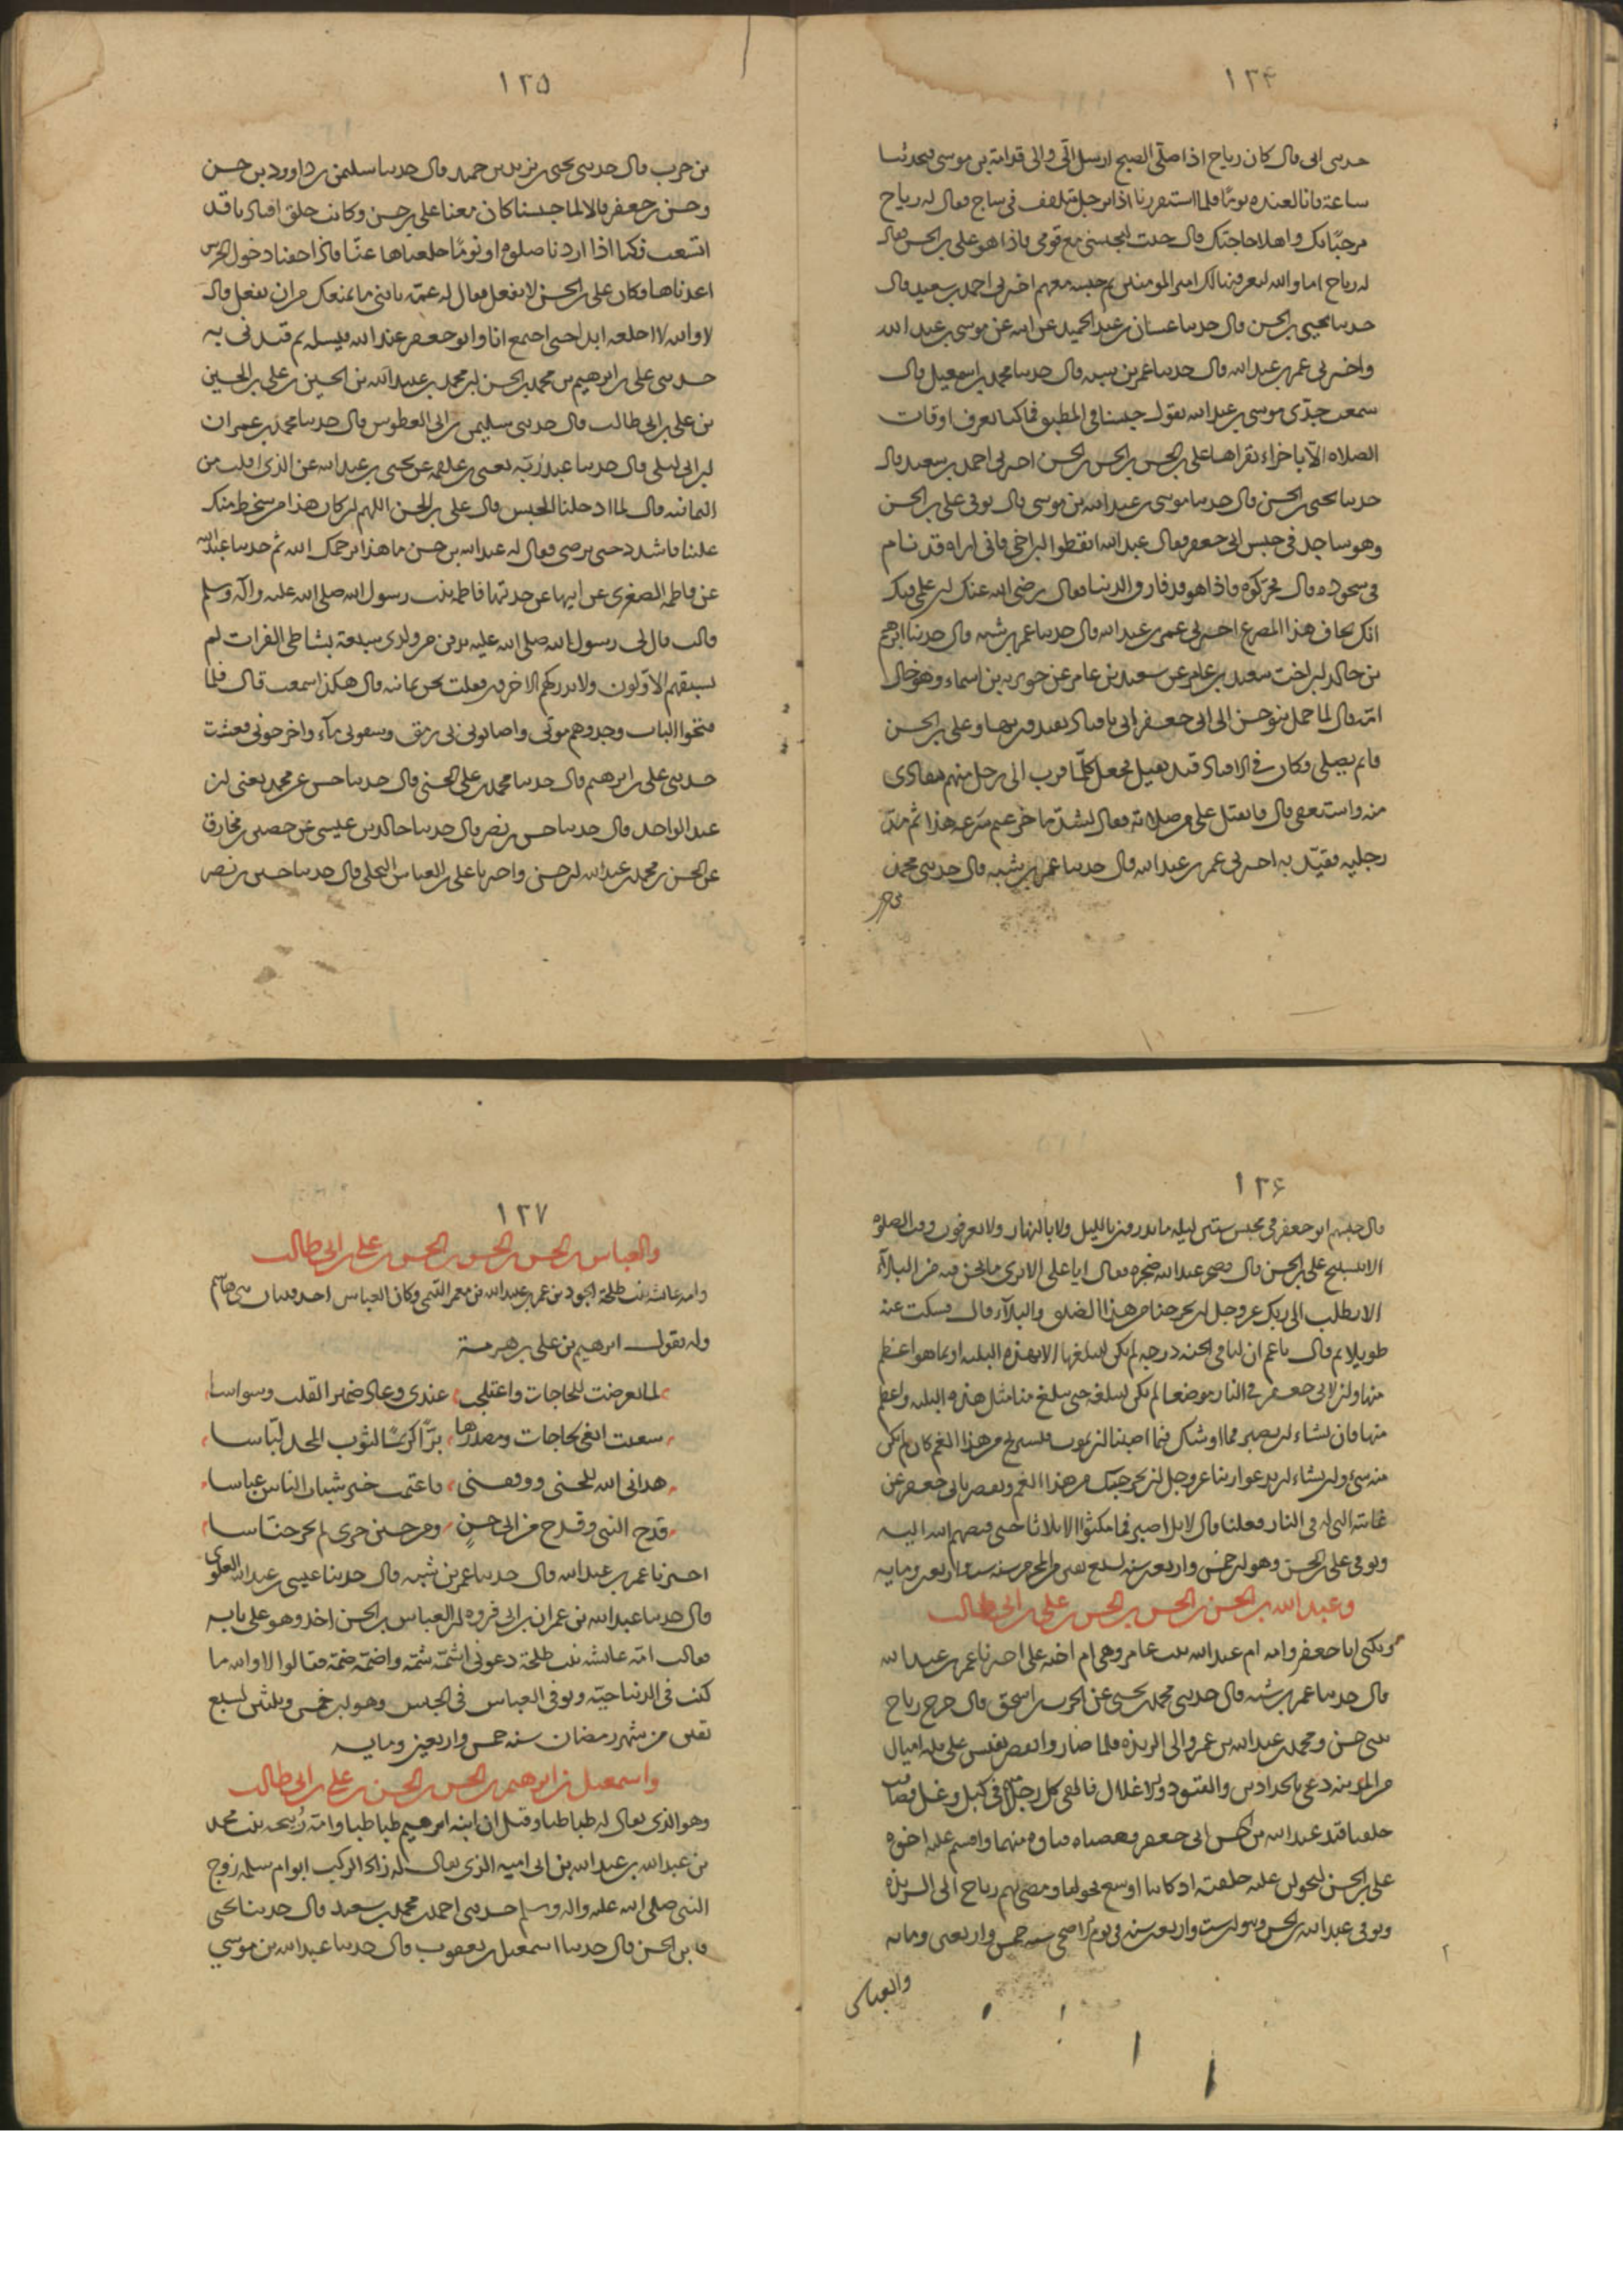 ١٢۴
حدثنى ابى قال كان رياح اذا صلّى الصبح ارسل الىّ والى قدامة بن موسى فيحدثنا
ساعة فانا لعنده يومًا فلما اسفرنا اذا برجل متلفف فى ساج فقال له رياح
مرحبًا بك واهلا حاجتك قال جئت لتحبسنى مع قومى فاذا هو على بن الحسن فقال
له رياح اما والله ليعرفنها لك امير المومنين ثم حبسه معهم اخبرنى احمد بن سعيد قال
حدثنا يحيى بن الحسن قال حدثنا غسان بن عبد الحميد عن ابيه عن موسى بن عبد الله
واخبرنى عمر بن عبد الله قال حدثنا عمر بن شبه قال حدثنا محمد بن اسمعيل قال
سمعت جدّى موسى بن عبد الله يقول حبسنا فى المطبق فما كنا نعرف اوقات
الصلاه الّا باجزاء يقراها على بن الحسن بن الحسن بن الحسن اخبرنى احمد بن سعيد قال
حدثنا يحيى بن الحسن قال حدثنا موسى بن عبد الله بن موسى قال توفى على بن الحسن
وهو ساجد فى حبس ابى جعفر فقال عبد الله ايقظوا ابن اخى فانى اراه قد نام
فى سجوده قال فحركوه فاذا هو قد فارق الدنيا فقال رضى الله عنك ان علمى فيك
انك تخاف هذا المصرع اخبرنى عمر بن عبد الله قال حدثنا عمر بن شبه قال حدثنا ابرهيم
بن خالد ابن اخت سعيد بن عامر عن سعيد بن عامر عن جويريه بن اسماء وهو خال
امّه قال لما حمل بنو حسن الى ابى جعفر اتى باقياد يقيدهم بها وعلى بن الحسن
قائم يصلى وكان فى الاقياد قيد ثقيل فجعل كلّما قرب الى رجل منهم تفادى
منه واستعفى قال فانفتل على من صلاته فقال لشدّ ما جزعتم شرعه هذا ثم مدّ
رجليه فقيّد به اخبرنى عمر بن عبد الله قال حدثنا عمر بن شبه قال حدثنى محمد
بن حرب
١٢۵
بن حرب قال حدثنى يحيى بن يزيد بن حميد قال حدثنا سليمن بن داوود بن حسن
وحسن بن جعفر قالا لما حبسنا كان معنا على بن حسن وكانت حلق اقيادنا قد
اتسعت فكنا اذا اردنا صلوه او نومًا خلعناها عنّا فاذا خفنا دخول الحرس
اعدناها وكان على بن الحسن لا يفعل فقال له عمّه يا بنى ما يمنعك من ان تفعل قال
لا والله لا اخلعه ابدا حتى اجتمع انا وابو جعفر عند الله فيسله لم قيدنى به
حدثنى على بن ابرهيم بن محمد بن الحسن ابن محمد بن عبيد الله بن الحسين بن على بن الحسين
بن على بن ابى طالب قال حدثنى سليمن بن ابى العطوس قال حدثنا محمد بن عمران
ابن ابى ليلى قال حدثنا عبد ربّه يعنى بن علقمه عن يحيى بن عبد الله عن الذى افلت من
الثمانيه قال لما ادخلنا الحبس قال على بن الحسن اللهم ان كان هذا من سخط منك
علينا فاشدد حتى ترضى فقال له عبد الله بن حسن ما هذا يرحمك الله ثم حدثنا عبد الله
عن فاطمه الصغرى عن ابيها عن جدتها فاطمه بنت رسول الله صلى الله عليه وآله وسلم
قالت قال لى رسول الله صلى الله عليه يدفن من ولدى سبعة بشاطى الفرات لم
يسبقهم الاوّلون ولا يدركهم الاخرون فقلت نحن ثمانيه قال هكذا سمعت قال فلمّا
فتحوا الباب وجدوهم موتى واصابونى بى رمق وسقونى مآء واخرجونى فعشت
حدثنى على بن ابرهيم قال حدثنا محمد بن على الحسنى قال حدثنا حسن بن محمد يعنى ابن
عبد الواحد قال حدثنا حسن بن نصر قال حدثنا خالد بن عيسى عن حصين بن مخارق
عن الحسن بن محمد بن عبد الله ابن حسن واخبرنا على بن العباس البجلى قال حدثنا حسين بن نصر
١٢۶
قال حبسهم ابو جعفر فى محبس ستين ليله ما يدرون بالليل ولا بالنهار ولا يعرفون وقت الصلوه
الا بتسبيح على بن الحسن قال فضجر عبد الله ضجره فقال ايا على الا ترى ما نحن فيه من البلآء
الا تطلب الى ربك عز وجل ان يخرجنا من هذا الضيق والبلآء قال فسكت عنه
طويلا ثم قال يا عم ان لنا فى الجنه درجه لم نكن لنبلغها الا بهذه البليه او بما هو اعظم
منها وان لابى جعفر فى النار موضعا لم يكن ليبلغه حتى يبلغ منا مثل هذه البليه واعظم
منها فان تشاء ان تصبر فما اوشك فيما اصبنا ان نموت فنستريح من هذا الغم كان لم يكن
منه شىء وان تشاء ان ندعو ربنا عز وجل ان يخرجك من هذا الغم ويقصر بابى جعفر عن
غايته التى له فى النار فعلنا قال لا بل اصبر فما مكثوا الا ثلاثا حتى قبضهم الله اليه
وتوفى على بن الحسن وهو ابن خمس واربعين سنه لسبع بقين من المحرم سنه ست واربعين ومايه
وعبد الله بن الحسن بن الحسن بن الحسن بن على بن ابى طالب
ويكنى ابا جعفر وامه ام عبد الله بنت عامر وهى ام اخيه على اخبرنا عمر بن عبد الله
قال حدثنا عمر بن شبه قال حدثنى محمد بن يحيى عن الحرث بن اسحق قال خرج رياح
ببنى حسن ومحمد بن عبد الله بن عمرو الى الربذه فلما صاروا بقصر نفيس على ثلثه اميال
من المدينه دعى بالحدادين والقيود والاغلال فالقى كل رجل منهم فى كبل وغل فضاقت
حلقتا قيد عبد الله بن الحسن ابى جعفر فعضتاه فتاوه منهما واقسم عليه اخوه
على بن الحسن لتحولن عليه حلقته اذ كانتا اوسع فحولتا ومضى بهم رياح الى الربذه
وتوفى عبد الله بن الحسن وهو ابن ست واربعين سنه فى يوم الاضحى سنه خمس واربعين ومايه
والعباس
١٢٧
والعباس بن الحسن بن الحسن بن الحسن بن على بن ابى طالب
وامه عائشه بنت طلحة الجود بن عمر بن عبيد الله بن معمر التيمى وكان العباس احد فتيان بنى هاشم
وله يقول ابرهيم بن على بن هرمة
لما تعرضت للحاجات واعتلجت عندى وعاد ضمير القلب وسواسا
سعيت ابغى لحاجات ومصدرها برّا كريمًا لثوب المجد لبّاسا
هدانى الله للحسنى ووفقنى فاعتمت خير شباب الناس عباسا
قدح النبى وقدح من ابى حسن ومن حسين جرى لم يجر حنّاسا
اخبرنا عمر بن عبد الله قال حدثنا عمر بن شبه قال حدثنا عيسى بن عبد الله العلوى
قال حدثنا عبد الله بن عمران بن ابى فروه ان العباس بن الحسن اخذ وهو على بابه
فقالت امّه عائشه بنت طلحة دعونى اشمّه شمّة واضمّه ضمّة فقالوا لا والله ما
كنت فى الدنيا حيّة وتوفى العباس فى الحبس وهو ابن خمس وثلثين لسبع
بقين من شهر رمضان سنه خمس واربعين ومايه
واسمعيل بن ابرهيم بن الحسن بن الحسن بن على بن ابى طالب
وهو الذى يقال له طباطبا وقيل ان ابنه ابرهيم طباطبا وامّه رُبيحه بنت محمد
بن عبد الله بن عبد الله بن ابى اميه الذى يقال له زاد الركب ابو ام سلمه زوج
النبى صلى الله عليه واله وسلم حدثنى احمد بن محمد بن سعيد قال حدثنا يحيى
بن الحسن قال حدثنا اسمعيل بن يعقوب قال حدثنا عبد الله بن موسى